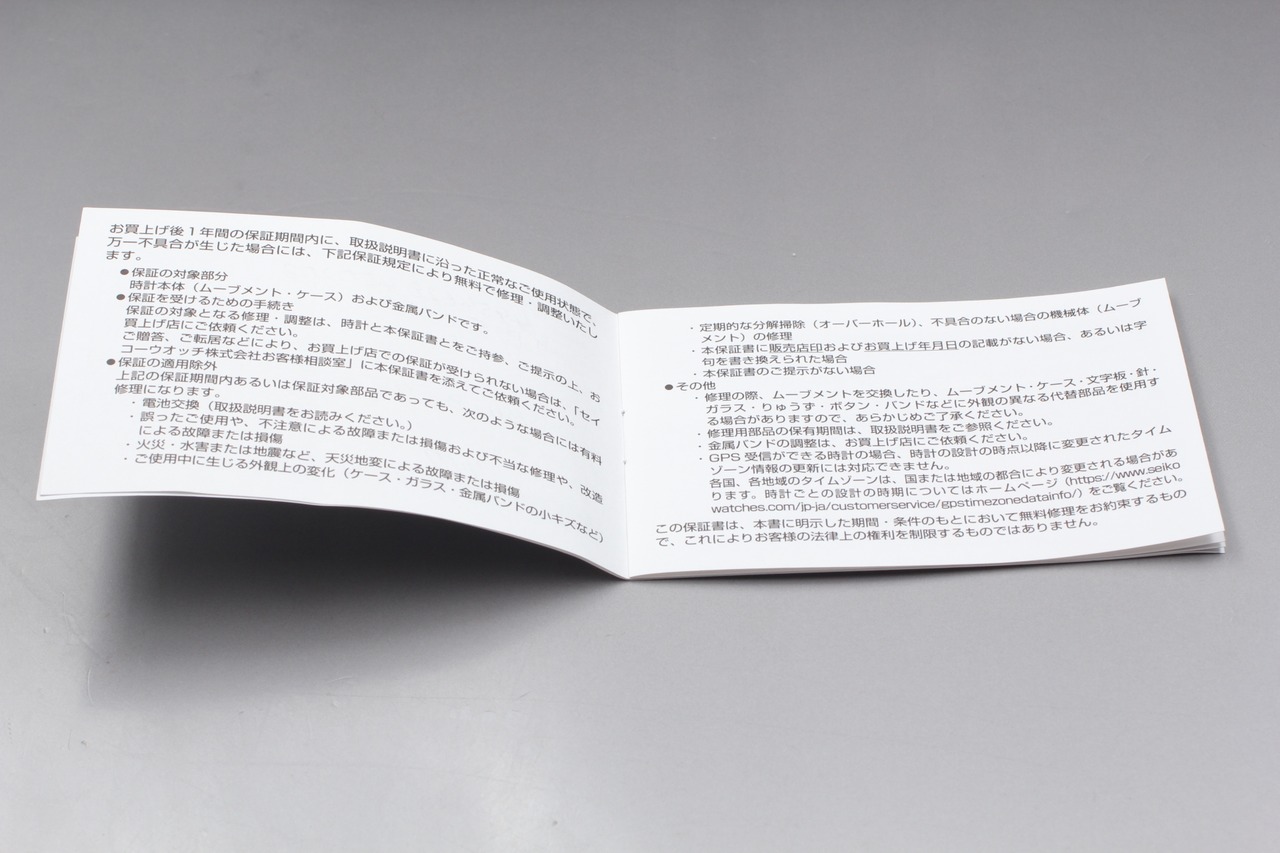 お買上げ後1年間の保証期間内に、取扱説明書に沿った正常なご使用状態で、
万一不具合が生じた場合には、下記保証規定により無料で修理・調整いたし
ます。
●保証の対象部分
時計本体（ムーブメント・ケース）および金属バンドです。
●保証を受けるための手続き
保証の対象となる修理・調整は、時計と本保証書とをご持参、ご提示の上、お
買上げ店にご依頼ください。
ご贈答、ご転居などにより、お買上げ店での保証が受けられない場合は、「セイ
コーウオッチ株式会社お客様相談室」に本保証書を添えてご依頼ください。
●保証の適用除外
上記の保証期間内あるいは保証対象部品であっても、次のような場合には有料
修理になります。
・電池交換（取扱説明書をお読みください。）
・誤ったご使用や、不注意による故障または損傷および不当な修理や、改造
による故障または損傷
・火災・水害または地震など、天災地変による故障または損傷
・ご使用中に生じる外観上の変化（ケース・ガラス・金属バンドの小キズなど）
・定期的な分解掃除（オーバーホール）、不具合のない場合の機械体（ムーブ
メント）の修理
・本保証書に販売店印およびお買上げ年月日の記載がない場合、あるいは字
句を書き換えられた場合
・本保証書のご提示がない場合
●その他
・修理の際、ムーブメントを交換したり、ムーブメント・ケース・文字板・針・
ガラス・りゅうず・ボタン・バンドなどに外観の異なる代替部品を使用す
る場合がありますので、あらかじめご了承ください。
・修理用部品の保有期間は、取扱説明書をご参照ください。
・金属バンドの調整は、お買上げ店にご依頼ください。
・GPS受信ができる時計の場合、時計の設計の時点以降に変更されたタイム
ゾーン情報の更新には対応できません。
各国、各地域のタイムゾーンは、国または地域の都合により変更される場合があ
ります。時計ごとの設計の時期についてはホームページ（https://www.seiko
watches.com/jp-ja/customerservice/gpstimezonedatainfo/）をご覧ください。
この保証書は、本書に明示した期間・条件のもとにおいて無料修理をお約束するもの
で、これによりお客様の法律上の権利を制限するものではありません。